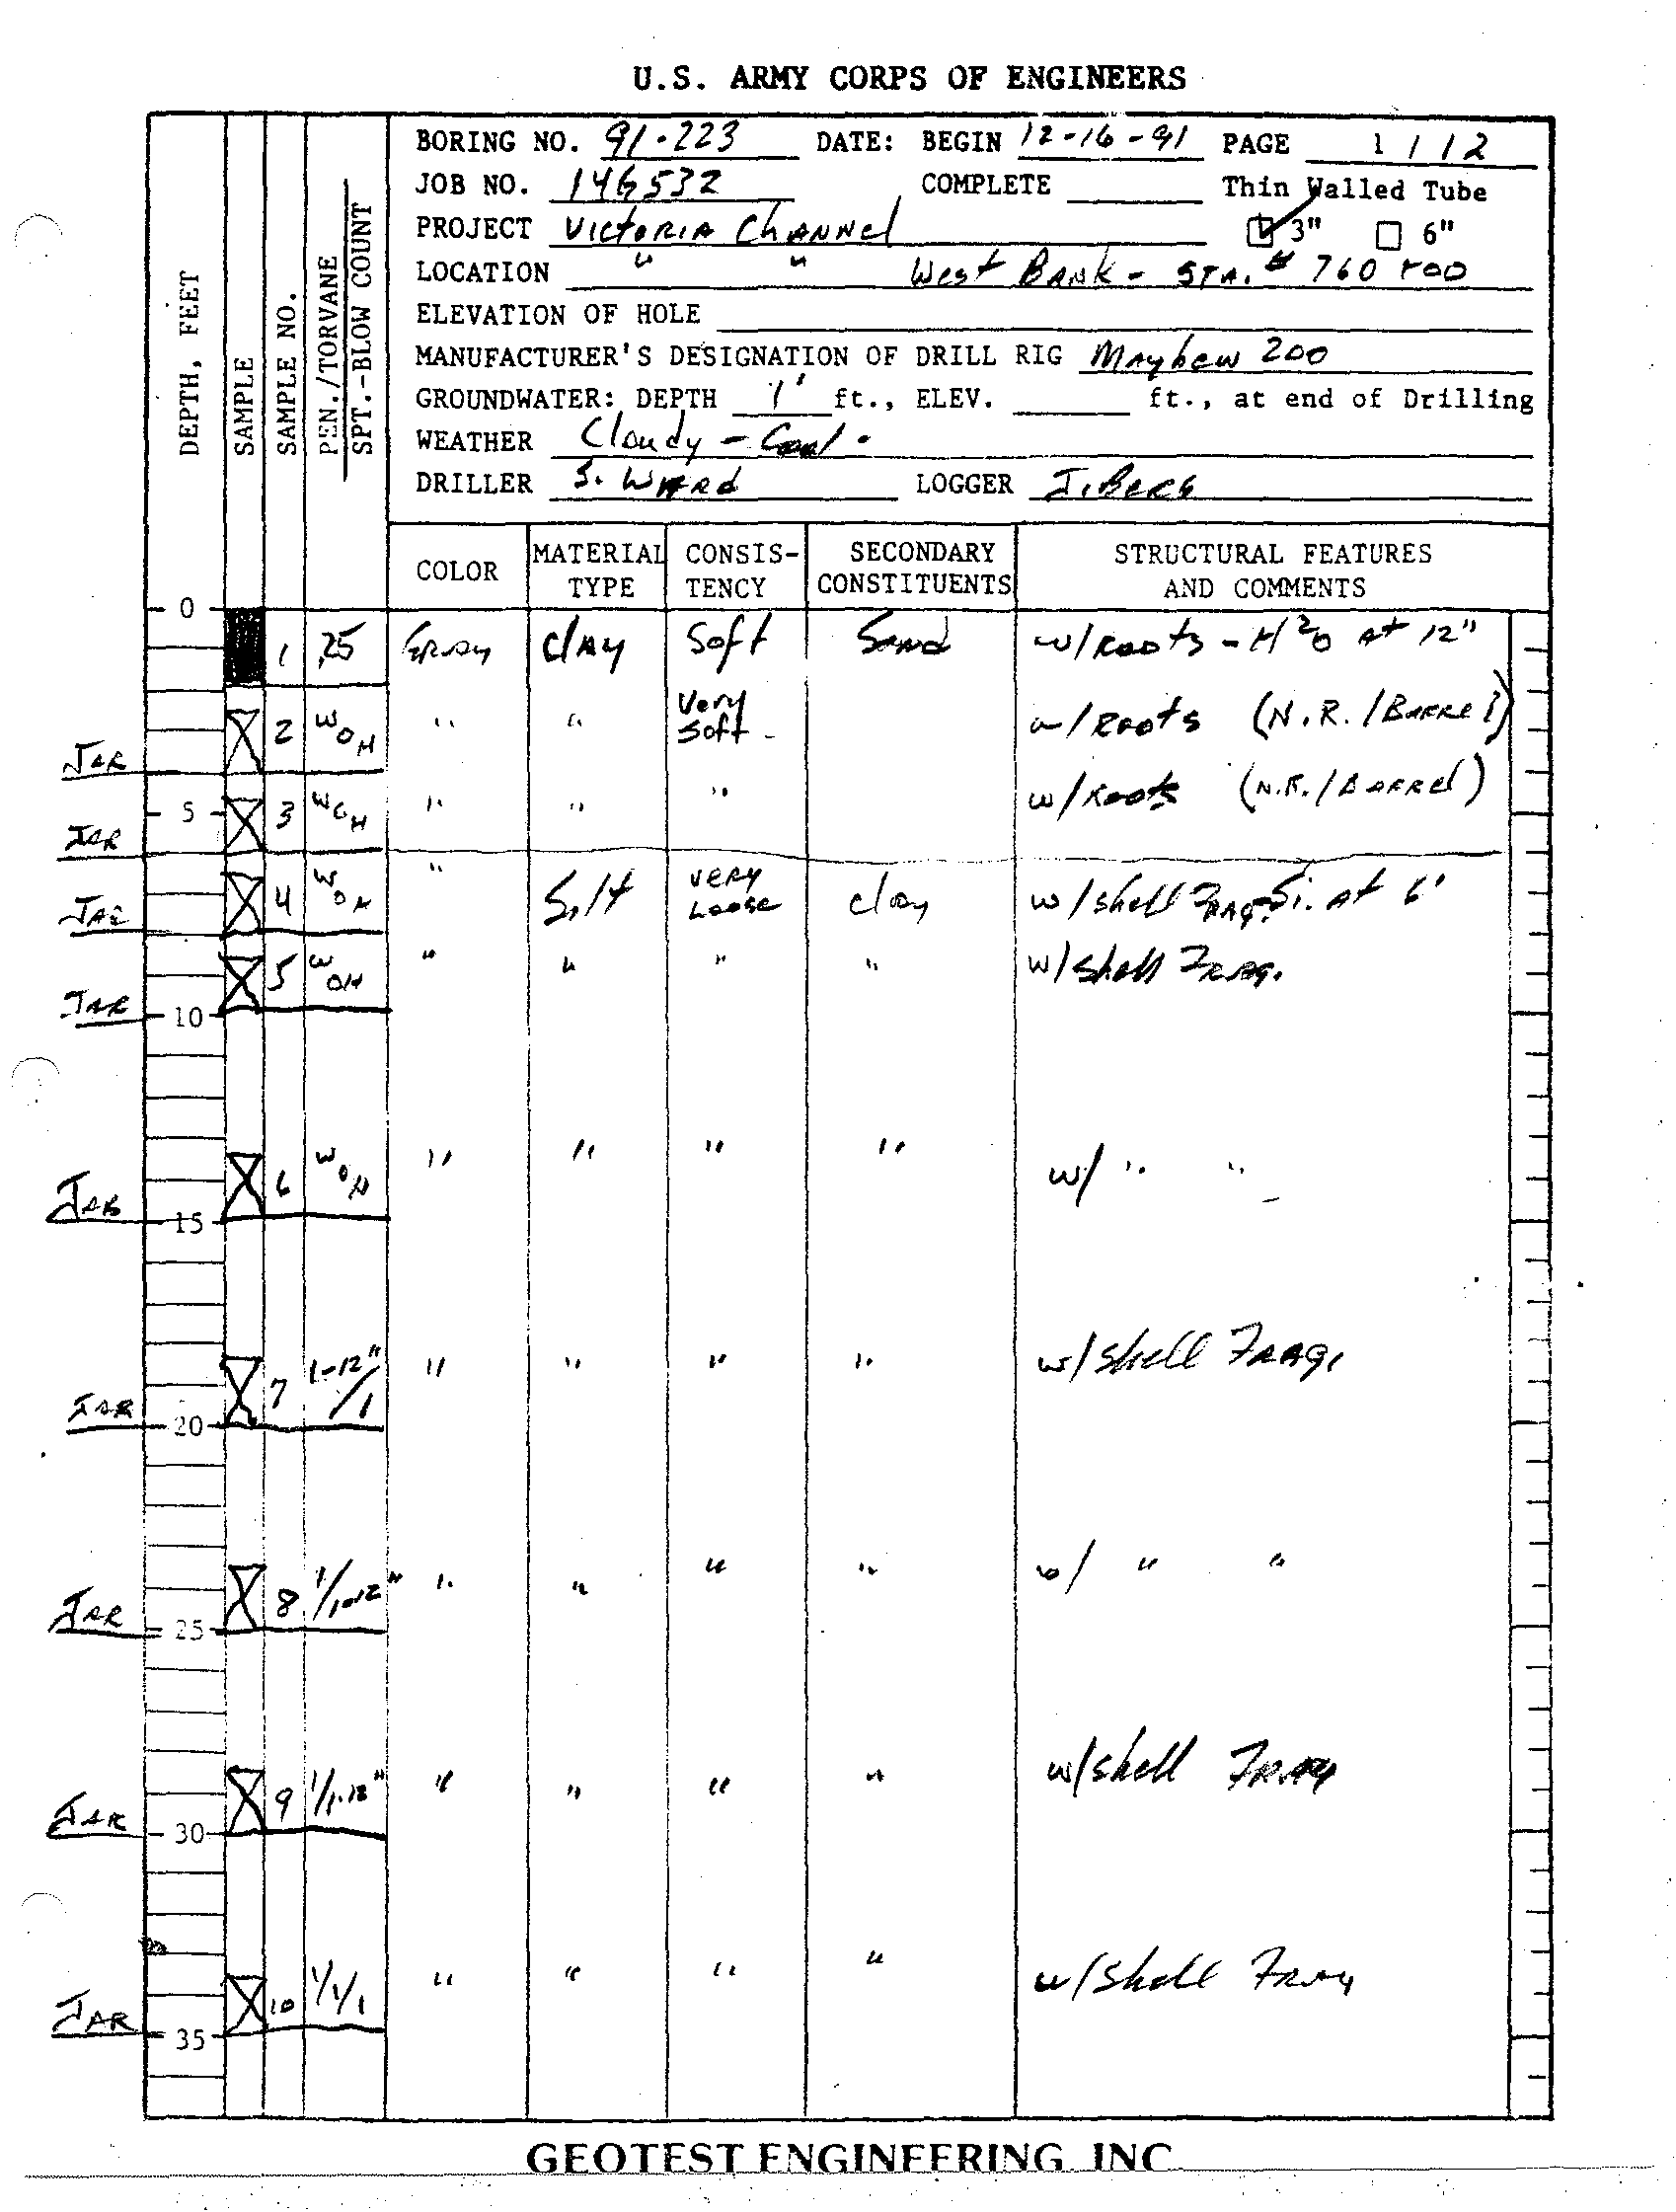 U.S. ARMY CORPS OF ENGINEERS
BORING NO. 91-223 DATE: BEGIN 12-16-91 PAGE 1 / 12
JOB NO. 146532 COMPLETE Thin Walled Tube
PROJECT Victoria Channel 3" 6"
LOCATION " " West Bank - STA. # 760 +00
ELEVATION OF HOLE
MANUFACTURER'S DESIGNATION OF DRILL RIG Mayhew 200
GROUNDWATER: DEPTH 1' ft., ELEV. ft., at end of Drilling
WEATHER Cloudy - Cool.
DRILLER S. Ward LOGGER J. Berg
DEPTH, FEET
SAMPLE
SAMPLE NO.
PEN./TORVANE
SPT.-BLOW COUNT
COLOR MATERIAL TYPE CONSIS-TENCY SECONDARY CONSTITUENTS STRUCTURAL FEATURES AND COMMENTS
0
1 .25 Gray Clay Soft Sand w/Roots - H2O At 12"
Jar 2 WOH " " Very Soft - w/Roots (N.R./Barrel)
Jar 5 3 WOH " " " w/Roots (N.R./Barrel)
Jar 4 WOH " Silt Very Loose Clay w/shell Frag. Si. At 6'
Jar 10 5 WOH " " " " w/shell Frag.
Jar 15 6 WOH " " " " w/ " "
Jar 20 7 1-12"/1 " " " " w/shell Frag.
Jar 25 8 1/1-12" " " " " w/ " "
Jar 30 9 1/1-12" " " " " w/shell Frag
Jar 35 10 1/1/1 " " " " w/shell Frag
GEOTEST ENGINEERING, INC.